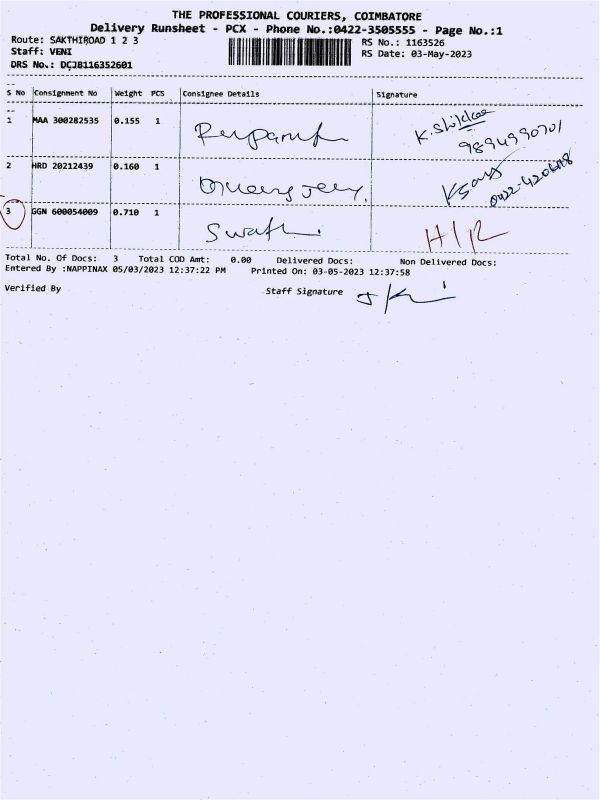 THE PROFESSIONAL COURIERS, COIMBATORE
Delivery Runsheet - PCX - Phone No.:0422-3505555 - Page No.:1
Route: SAKTHIROAD 1 2 3
RS No.: 1163526
Staff: VENI
RS Date: 03-May-2023
DRS No.: DCJB116352601
S No Consignment No Weight PCS Consignee Details Signature
1 MAA 300282535 0.155 1
9894990701
2 HRD 20212439 0.160 1
3 GGN 600054009 0.710 1 Swathi
Total No. Of Docs: 3 Total COD Amt: 0.00 Delivered Docs: Non Delivered Docs:
Entered By :NAPPINAX 05/03/2023 12:37:22 PM Printed On: 03-05-2023 12:37:58
Verified By Staff Signature